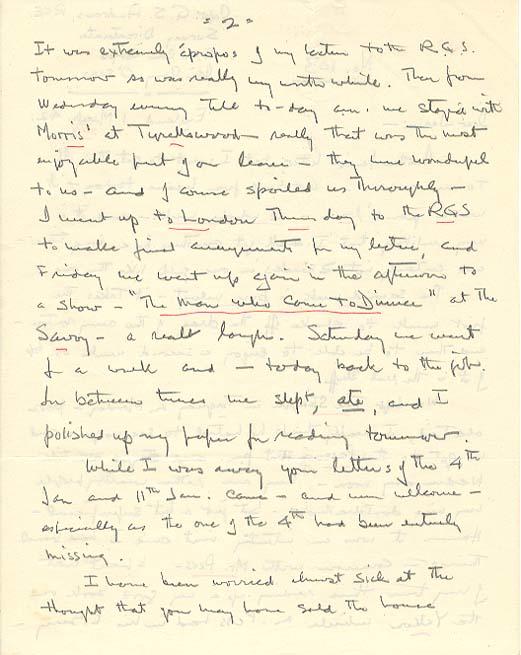 - 2 -
It was extremely àpropos of my lecture to the R.G.S.
tomorrow so was really very worth while. Then from
Wednesday evening till to-day a.m. we stayed with
Morris' at Tyrellswood - really that was the most
enjoyable part of our leave - they were wonderful
to us - and of course spoiled us thoroughly -
I went up to London Thursday to the RGS
to make final arrangements for my lecture, and
Friday we went up again in the afternoon to
a show - "The Man who Came to Dinner" at the
Savoy - a real laugh. Saturday we went
for a walk and - today back to the job.
In between times we slept, ate, and I
polished up my paper for reading tomorrow.
While I was away your letters of the 4th
Jan and 11th Jan. came - and were welcome -
especially as the one of the 4th had been entirely
missing.
I have been worried almost sick at the
thought that you may have sold the house